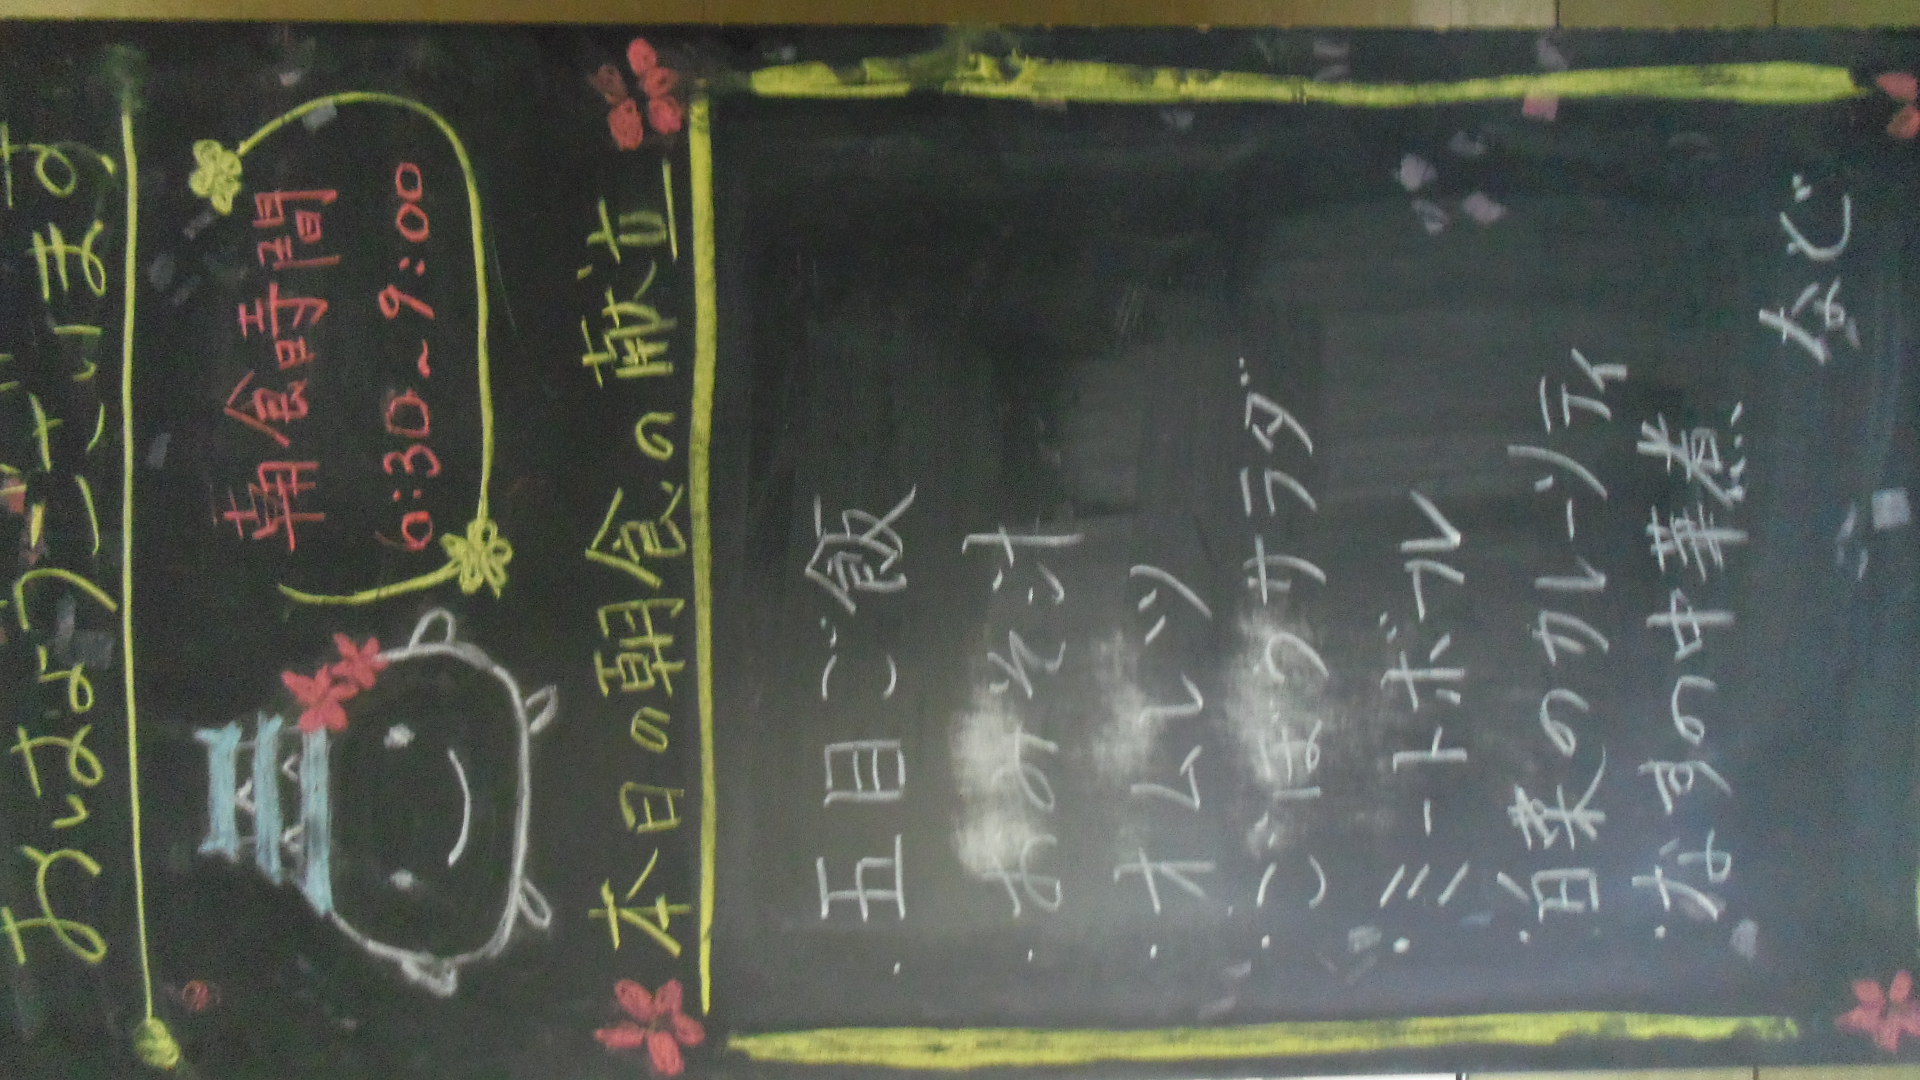 おはようございます
朝食時間
6:30~9:00
本日の朝食の献立
・五目ご飯
・おみそ汁
・オムレツ
・ごぼうサラダ
・ミートボール
・白菜のカレーソテー
・なすの中華煮
など